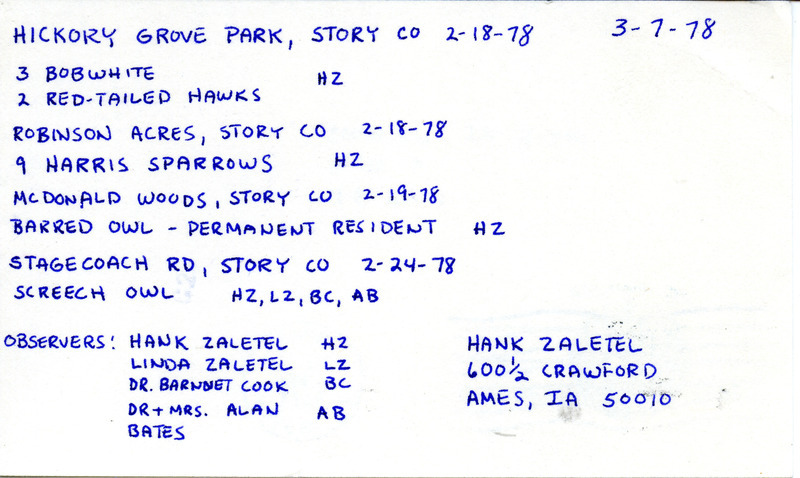 HICKORY GROVE PARK, STORY CO 2-18-78 3-7-78
3 BOBWHITE HZ
2 RED-TAILED HAWKS
ROBINSON ACRES, STORY CO 2-18-78
9 HARRIS SPARROWS HZ
MCDONALD WOODS, STORY CO 2-19-78
BARRED OWL - PERMANENT RESIDENT HZ
STAGECOACH RD, STORY CO 2-24-78
SCREECH OWL HZ, LZ, BC, AB
OBSERVERS: HANK ZALETEL HZ
LINDA ZALETEL LZ
DR. BARNDET COOK BC
DR + MRS. ALAN AB
BATES
HANK ZALETEL
600½ CRAWFORD
AMES, IA 50010